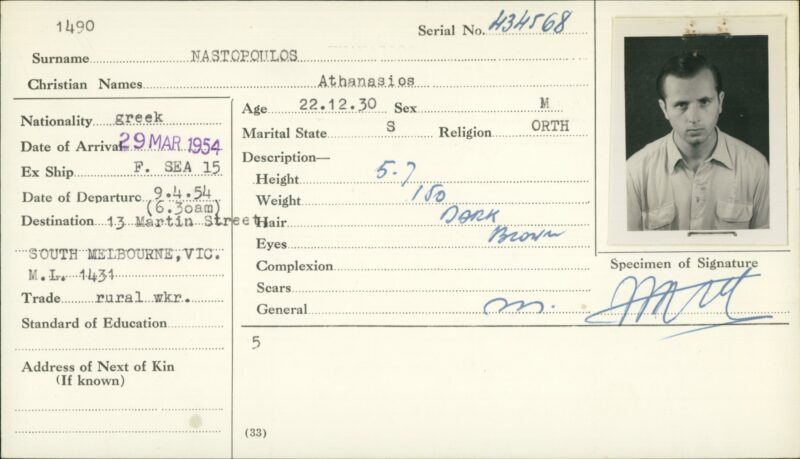 1490
Serial No. 434568
Surname NASTOPOULOS
Christian Names Athanasios
Nationality greek
Date of Arrival 29 MAR 1954
Ex Ship F. SEA 15
Date of Departure 9.4.54
(6.30am)
Destination 13 Martin Street
SOUTH MELBOURNE, VIC.
M.L. 1431
Trade rural wkr.
Standard of Education
Address of Next of Kin
(If known)
Age 22.12.30 Sex M
Marital State S Religion ORTH
Description—
Height 5.7
Weight 150
Hair DARK
Eyes Brown
Complexion
Scars
General m.
5
(33)
Specimen of Signature